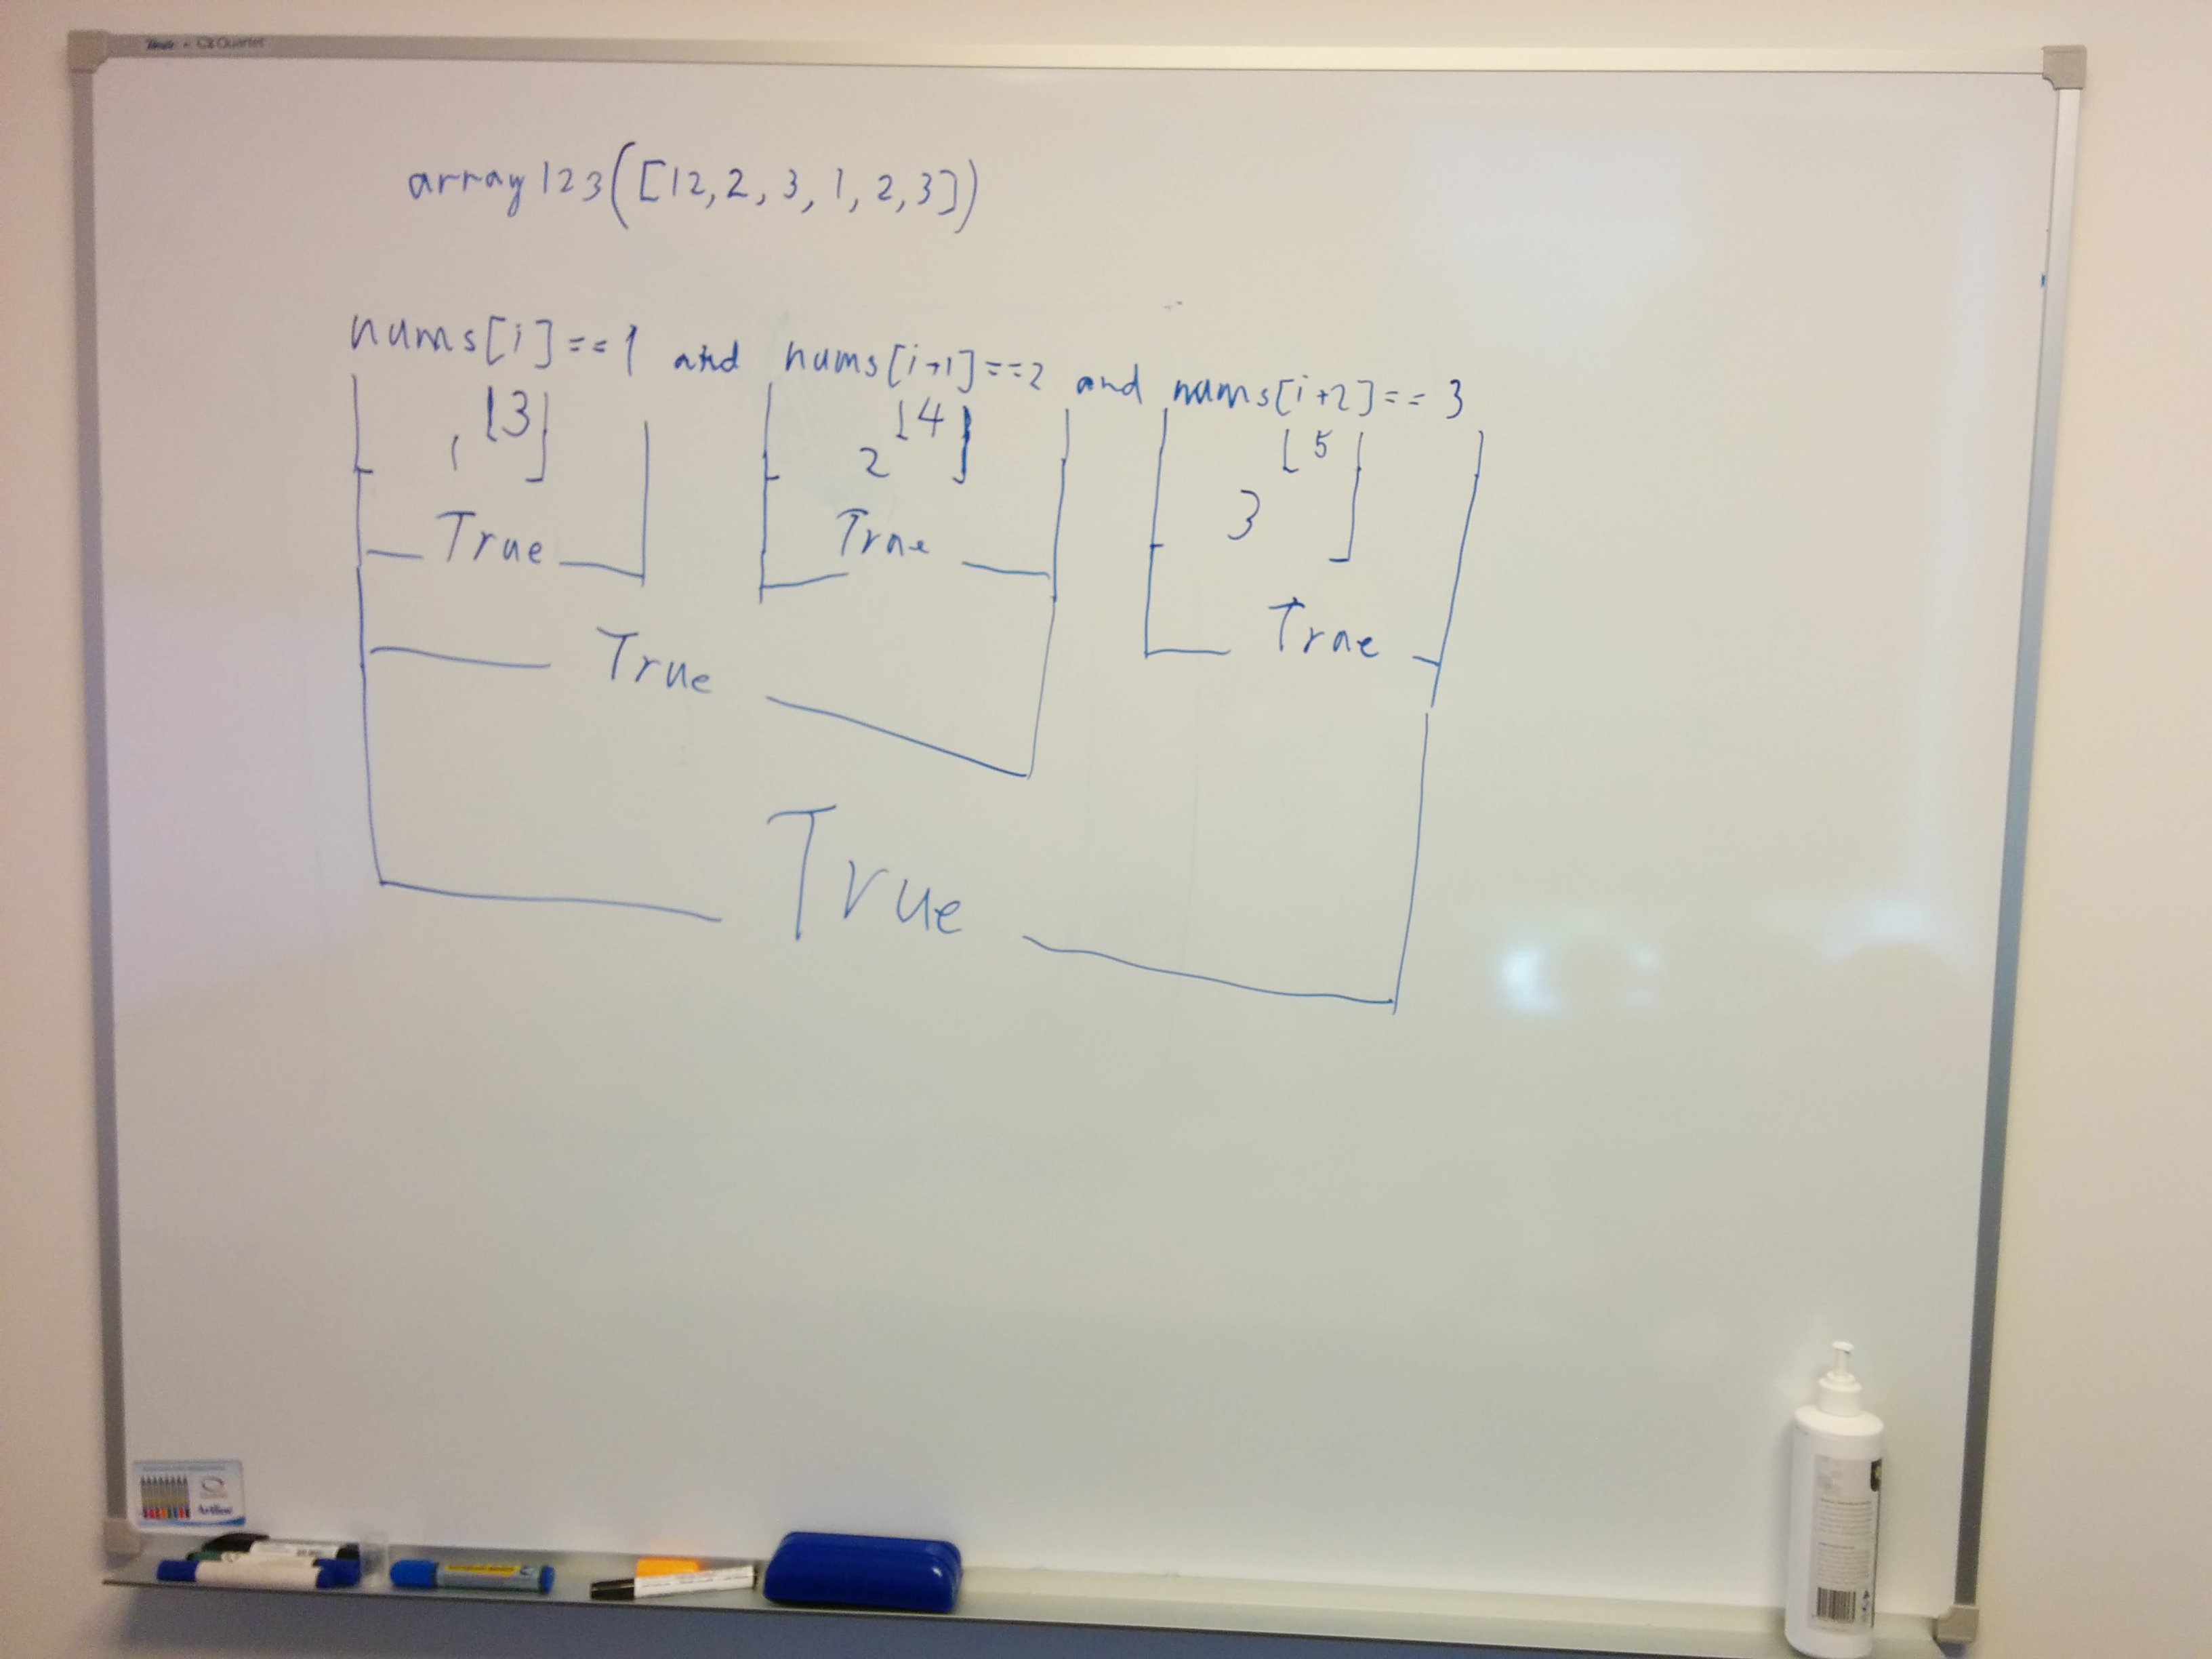 Quartet
array123([12,2,3,1,2,3])
nums[i]==1 and nums[i+1]==2 and nums[i+2]==3
[3] [4] [5]
1 2 3
True True True
True
True
Artline